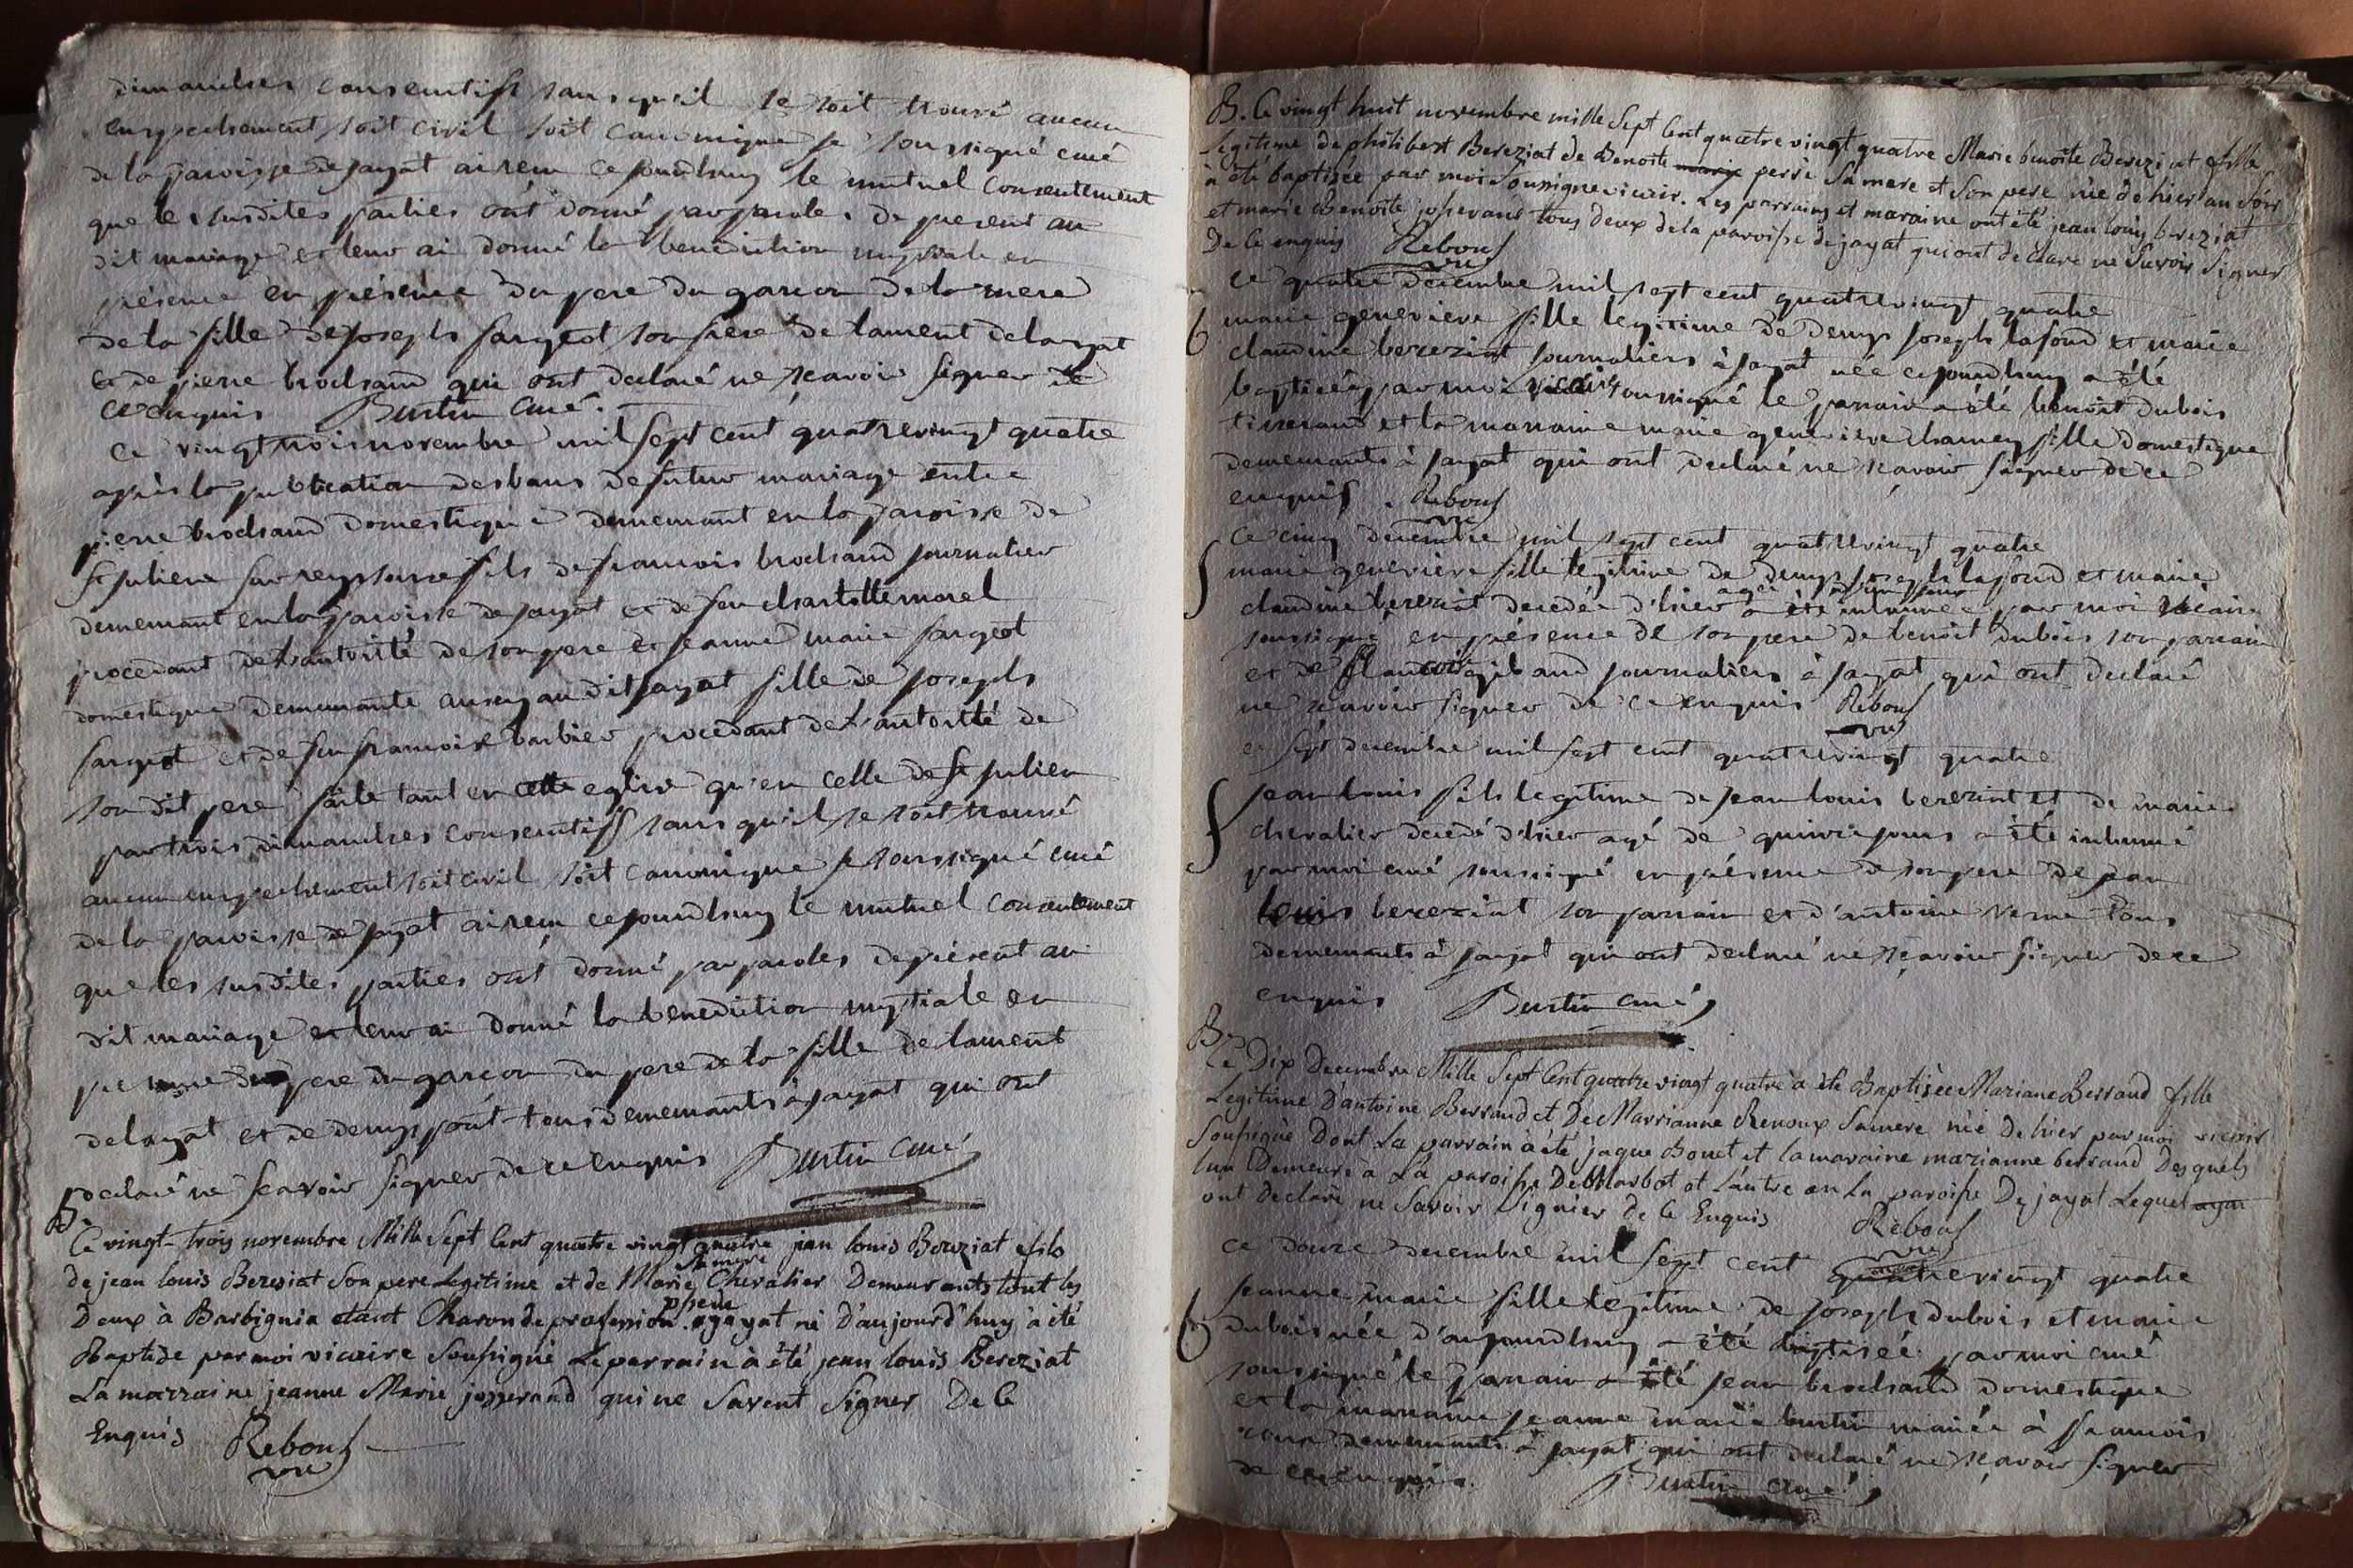 dimanches consecutifs sans qu'il se soit trouvé aucun
empechement soit civil soit canonique je soussigné curé
de la paroisse de jayat ai recu ce jourdhuy le mutuel consentement
que les susdites parties ont donné par paroles de present au
dit mariage et leur ai donné la benediction nuptiale en
présence en présence du pere du garcon de la mere
de la fille de joseph fargeot son frere de lament delayat
et de pierre brochand qui ont declaré ne scavoir signer de
ce enquis Burtin curé
ce vingt trois novembre mil sept cent quatre vingt quatre
après la publication des bans de futur mariage entre
pierre brochand domestique demeurant en la paroisse de
st julien sur reyssouse fils de francois brochand journalier
demeurant en la paroisse de jayat et de feu charlotte morel
procedant de l'autorité de son pere et jeanne marie fargeot
domestique demeurante aussy au dit jayat fille de joseph
fargeot et de feu francoise barbier procedant de l'autorité de
son dit pere faite tant en cette eglise qu'en celle de st julien
par trois dimanches consecutifs sans qu'il se soit trouvé
aucun empechement soit civil soit canonique je soussigné curé
de la paroisse de jayat ai recu ce jourdhuy le mutuel consentement
que les susdites parties ont donné par paroles de présent au
dit mariage et leur ai donné la benediction nuptiale en
du pere du garcon du pere de la fille de lament
delayat et de denys pont tous demeurants à jayat qui ont
declaré ne scavoir signer de ce enquis Burtin curé
B
Ce vingt-trois novembre Mille Sept Cent quatre vingt quatre jean louis Bereziat fils
de jean louis Bereziat Son pere Legitime et de Marie Chevalier Sa mere Demeurants tout les
Deux à Barbignia etant Charon de profession psse de jayat né D'aujourd'huy à été
Baptisé par moi vicaire Soussigné Le parrain à été jean louis Bereziat
La marraine jeanne Marie josserand qui ne Savent Signer De Ce
Enquis Rebouf
vre
B. Ce vingt huit novembre mille Sept Cent quatre vingt quatre Marie benoite Bereziat fille
Legitime de philibert Bereziat de Benoite marie perré Sa mere et Son pere née de hier au Soir
à été baptisée par moi Soussigné vicair. Les parrains et maraine ont été jean louis bereziat
et marie Benoite josserand tous deux de la paroisse de jayat qui ont declaré ne Savoir Signer
De Ce enquis Rebouf
vre
ce quatre decembre mil sept cent quatre vingt quatre
b marie genevieve fille legitime de denys joseph lafond et marie
claudine bereziat journaliers à jayat née ce jourdhuy a été
baptisée par moi vicaire soussigné le parrain a été benoit dubois
tisserand et la marraine marie genevieve charney fille domestique
demeurants à jayat qui ont declaré ne scavoir signer de ce
enquis. Rebouf
vre
ce cinq decembre mil sept cent quatre vingt quatre
S marie genevieve fille legitime de denys joseph lafond et marie
claudine bereziat decedée d'hier agée d'un jour a été inhumée par moi vicaire
soussigné en présence de son pere de benoit dubois son parrain
et de gibaud journaliers à jayat qui ont declaré
ne scavoir signer de ce enquis Rebouf
vre
ce sept decembre mil sept cent quatre vingt quatre
S jean louis fils legitime de jean louis bereziat et de marie
chevalier decedé d'hier agé de quinze jours a été inhumé
par moi curé soussigné en présence de son pere de jean
louis bereziat son parrain et d'antoine verne tous
demeurants à jayat qui ont declaré ne scavoir signer de ce
enquis Burtin curé
B
Le Dix Decembre Mille Sept Cent quatre vingt quatre à été Baptisée Mariane Berraud fille
Legitime D'antoine Berraud et De Marrianne Renoux Sa mere née De hier par moi vicair
Soussigné Dont La parrain à été jaque Bouet et la maraine marianne berraud Desquels
l'un Demeure à La paroisse De Marbot et L'autre en La paroisse De jayat Lequel
ont declaré ne Savoir Signier de Ce Enquis Rebouf
vre
ce douze decembre mil sept cent quatre vingt quatre
jeanne marie fille legitime de joseph dubois et marie
b dubois née d'aujourdhuy a été baptisée par moi curé
soussigné le parrain a été jean brochand domestique
et la marraine jeanne marie burtin mariée à francois
demeurants à jayat qui ont declaré ne scavoir signer
de ce enquis. Burtin curé